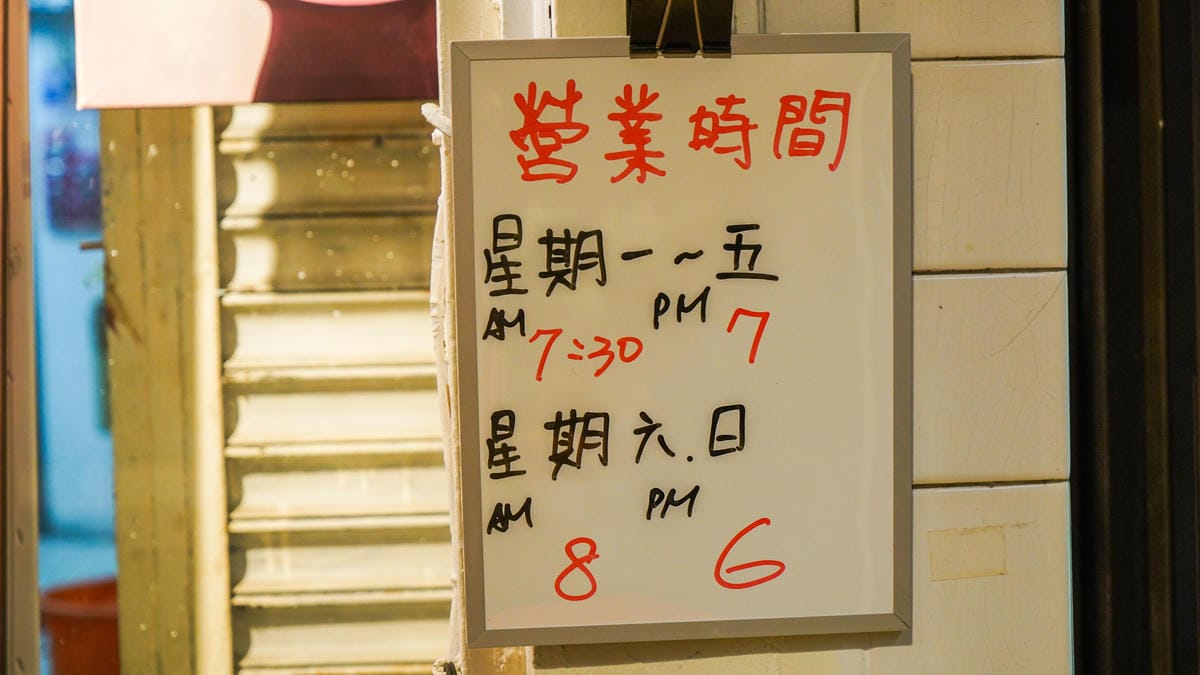 營業時間
星期一~五
AM 7:30 PM 7
星期六.日
AM 8 PM 6